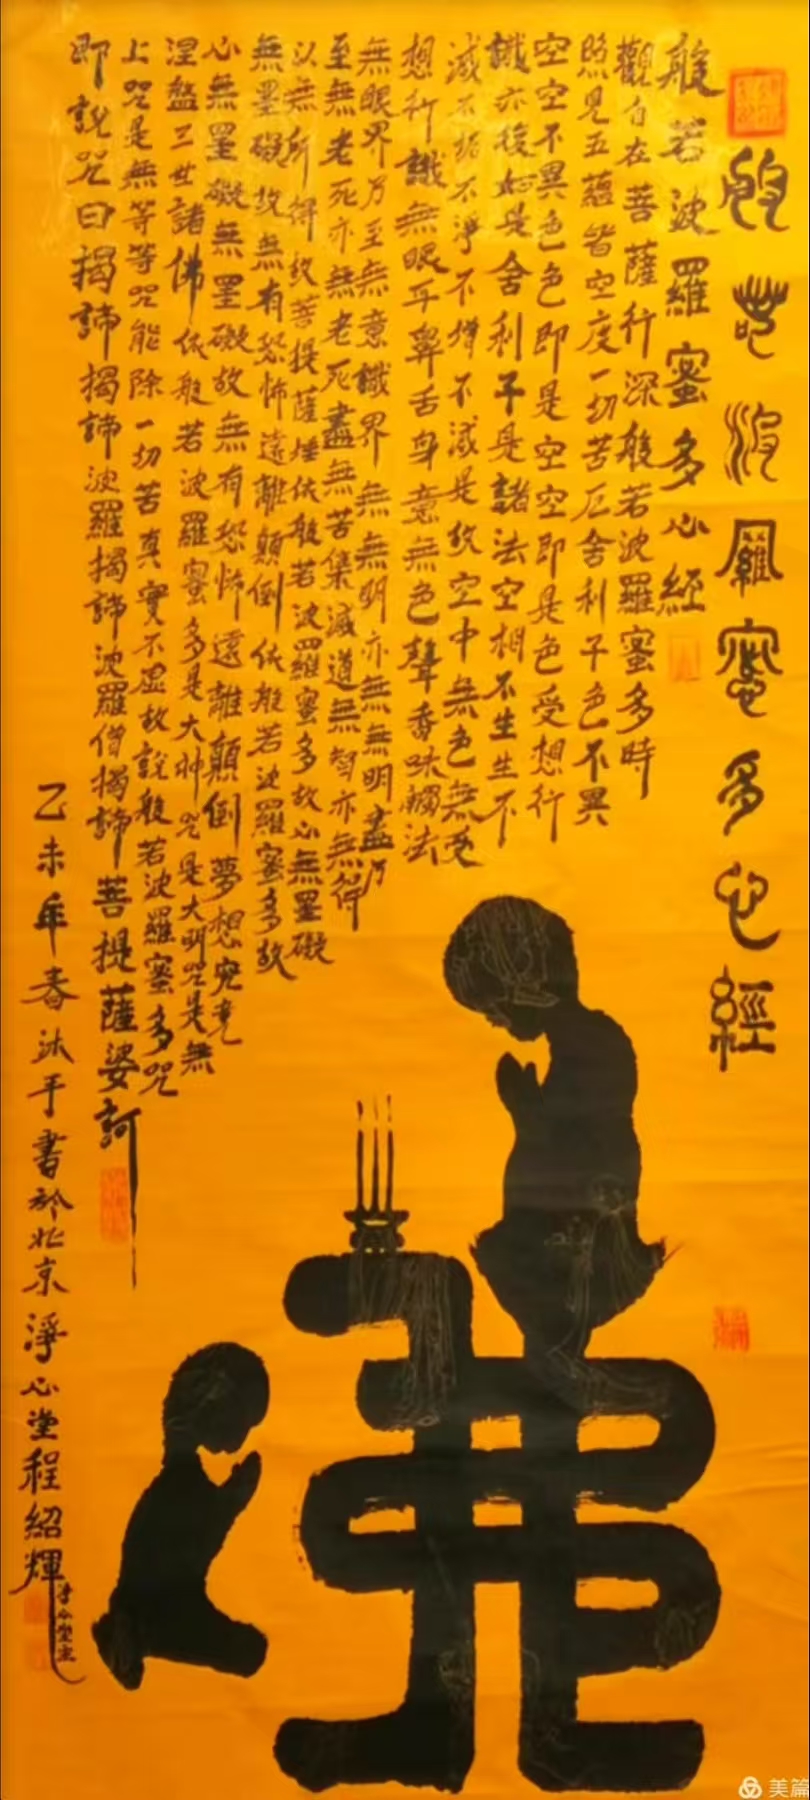 般若波羅蜜多心經
般若波羅蜜多心經
觀自在菩薩行深般若波羅蜜多時
照見五蘊皆空度一切苦厄舍利子色不異
空空不異色色即是空空即是色受想行
識亦復如是舍利子是諸法空相不生生不
滅不垢不淨不增不減是故空中無色無受
想行識無眼耳鼻舌身意無色聲香味觸法
無眼界乃至無意識界無無明亦無無明盡乃
至無老死亦無老死盡無苦集滅道無智亦無得
以無所得故菩提薩埵依般若波羅蜜多故心無罣礙
無罣礙故無有恐怖遠離顛倒依般若波羅蜜多故
心無罣礙無罣礙故無有恐怖遠離顛倒夢想究竟
涅盤三世諸佛依般若波羅蜜多是大神咒是大明咒是無
上咒是無等等咒能除一切苦真實不虛故說般若波羅蜜多咒
即說咒曰揭諦揭諦波羅揭諦波羅僧揭諦菩提薩婆訶
乙未年春沐手書於北京淨心堂程紹輝
淨心堂主
佛
美篇